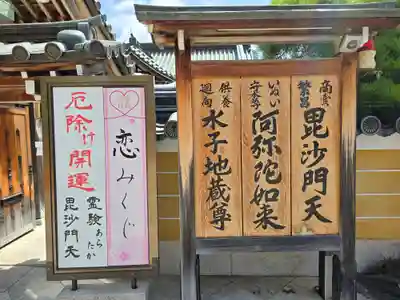 厄除け開運
霊験あらたか
毘沙門天
恋みくじ
商売繁昌
毘沙門天
阿弥陀如来
供養廻向
水子地蔵尊